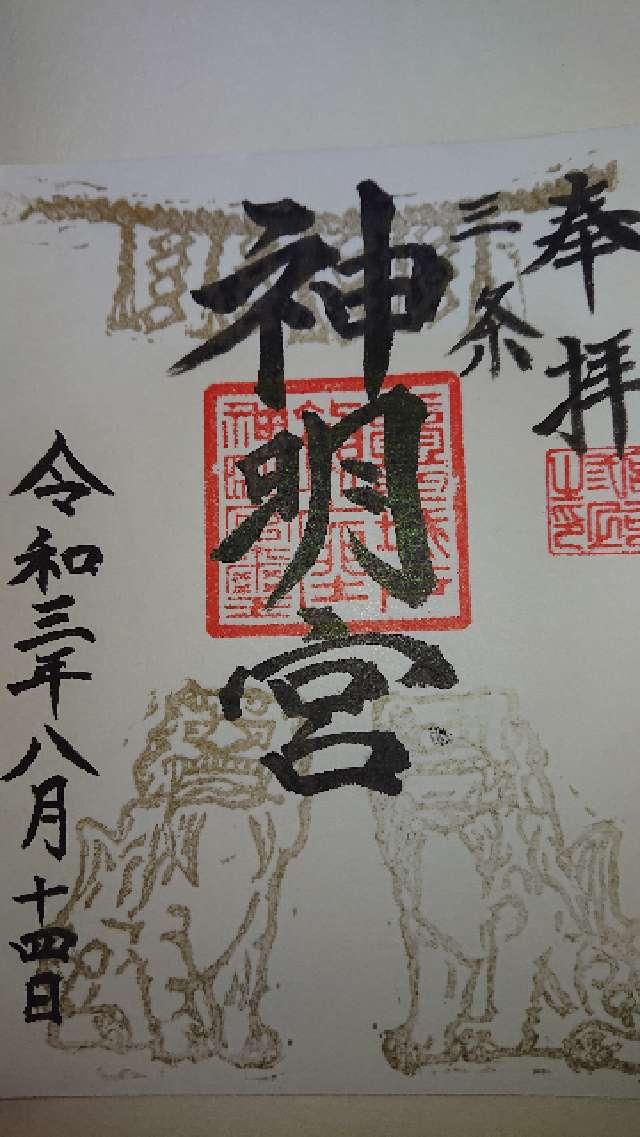 奉拝
三条
神明宮
令和三年八月十四日